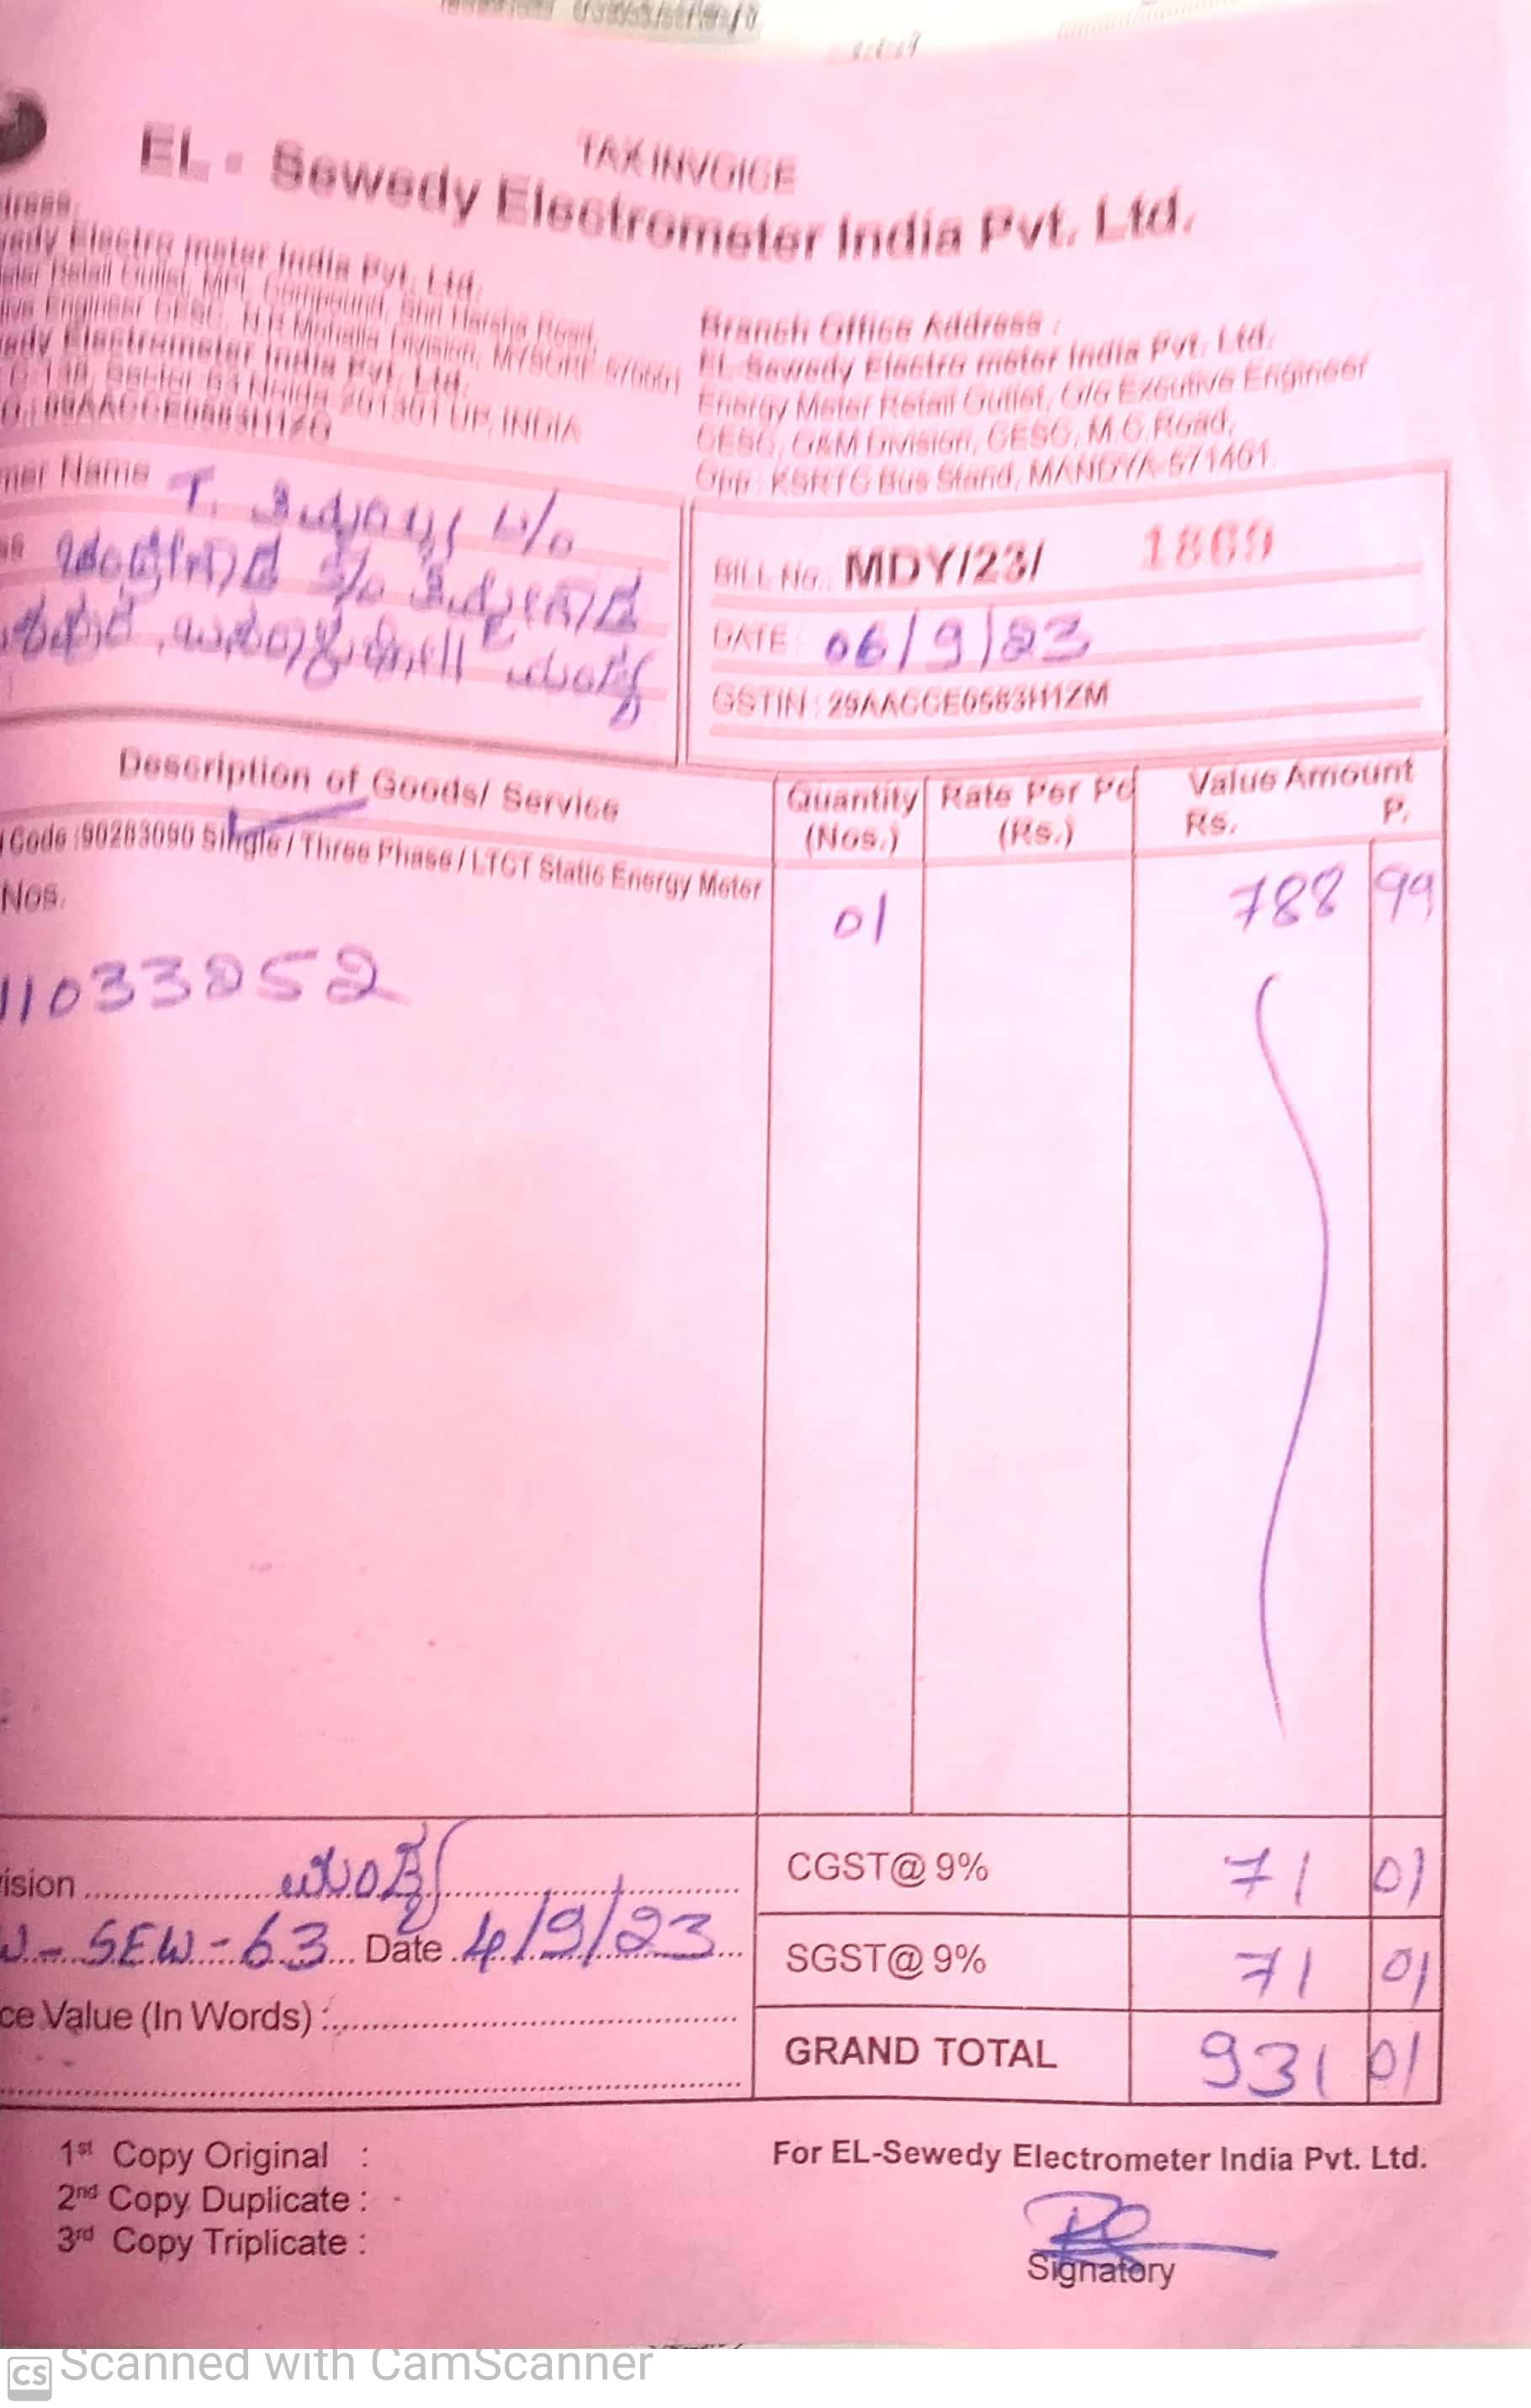 TAX INVOICE
EL - Sewedy Electrometer India Pvt. Ltd.
Electro meter India Pvt. Ltd.
Retail Outlet, MPL Compound, Shri Harsha Road,
Engineer CESC, N R Mohalla Division, MYSORE 570001
Electrometer India Pvt. Ltd.
Noida 201301 UP, INDIA
Branch Office Address :
EL-Sewedy Electro meter India Pvt. Ltd.
Energy Meter Retail Outlet, O/o Exeutive Engineer
CESC, O&M Division, CESC, M.C.Road,
Opp : KSRTC Bus Stand, MANDYA-571401.
Name T.
BILL No. MDY/23/ 1869
DATE : 06/9/23
GSTIN : 29AACCE0583H1ZM
Description of Goods/ Service
Quantity (Nos.)
Rate Per Pc (Rs.)
Value Amount
Rs. P.
Code :90283090 Single / Three Phase / LTCT Static Energy Meter
Nos.
01
788 99
11033252
ision ಮಂಡ್ಯ
CGST@ 9% 71 01
- SEW - 63 Date 4/9/23
SGST@ 9% 71 01
ce Value (In Words) :
GRAND TOTAL 931 01
1st Copy Original :
2nd Copy Duplicate :
3rd Copy Triplicate :
For EL-Sewedy Electrometer India Pvt. Ltd.
Signatory
CS Scanned with CamScanner